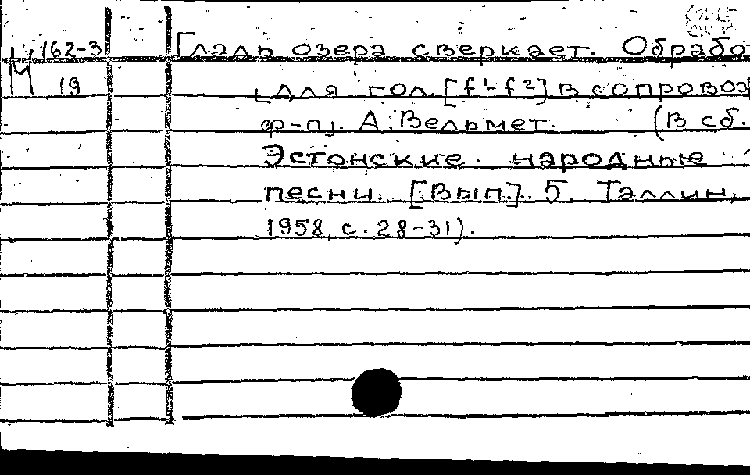 М 162-3 Гладь озера сверкает. Обрабо
19 [для гол. [f¹-f²] в сопровож
ф-п]. А. Вельмет. (В сб.
Эстонские народные
песни. [Вып]. 5. Таллин,
1958, с. 28-31).